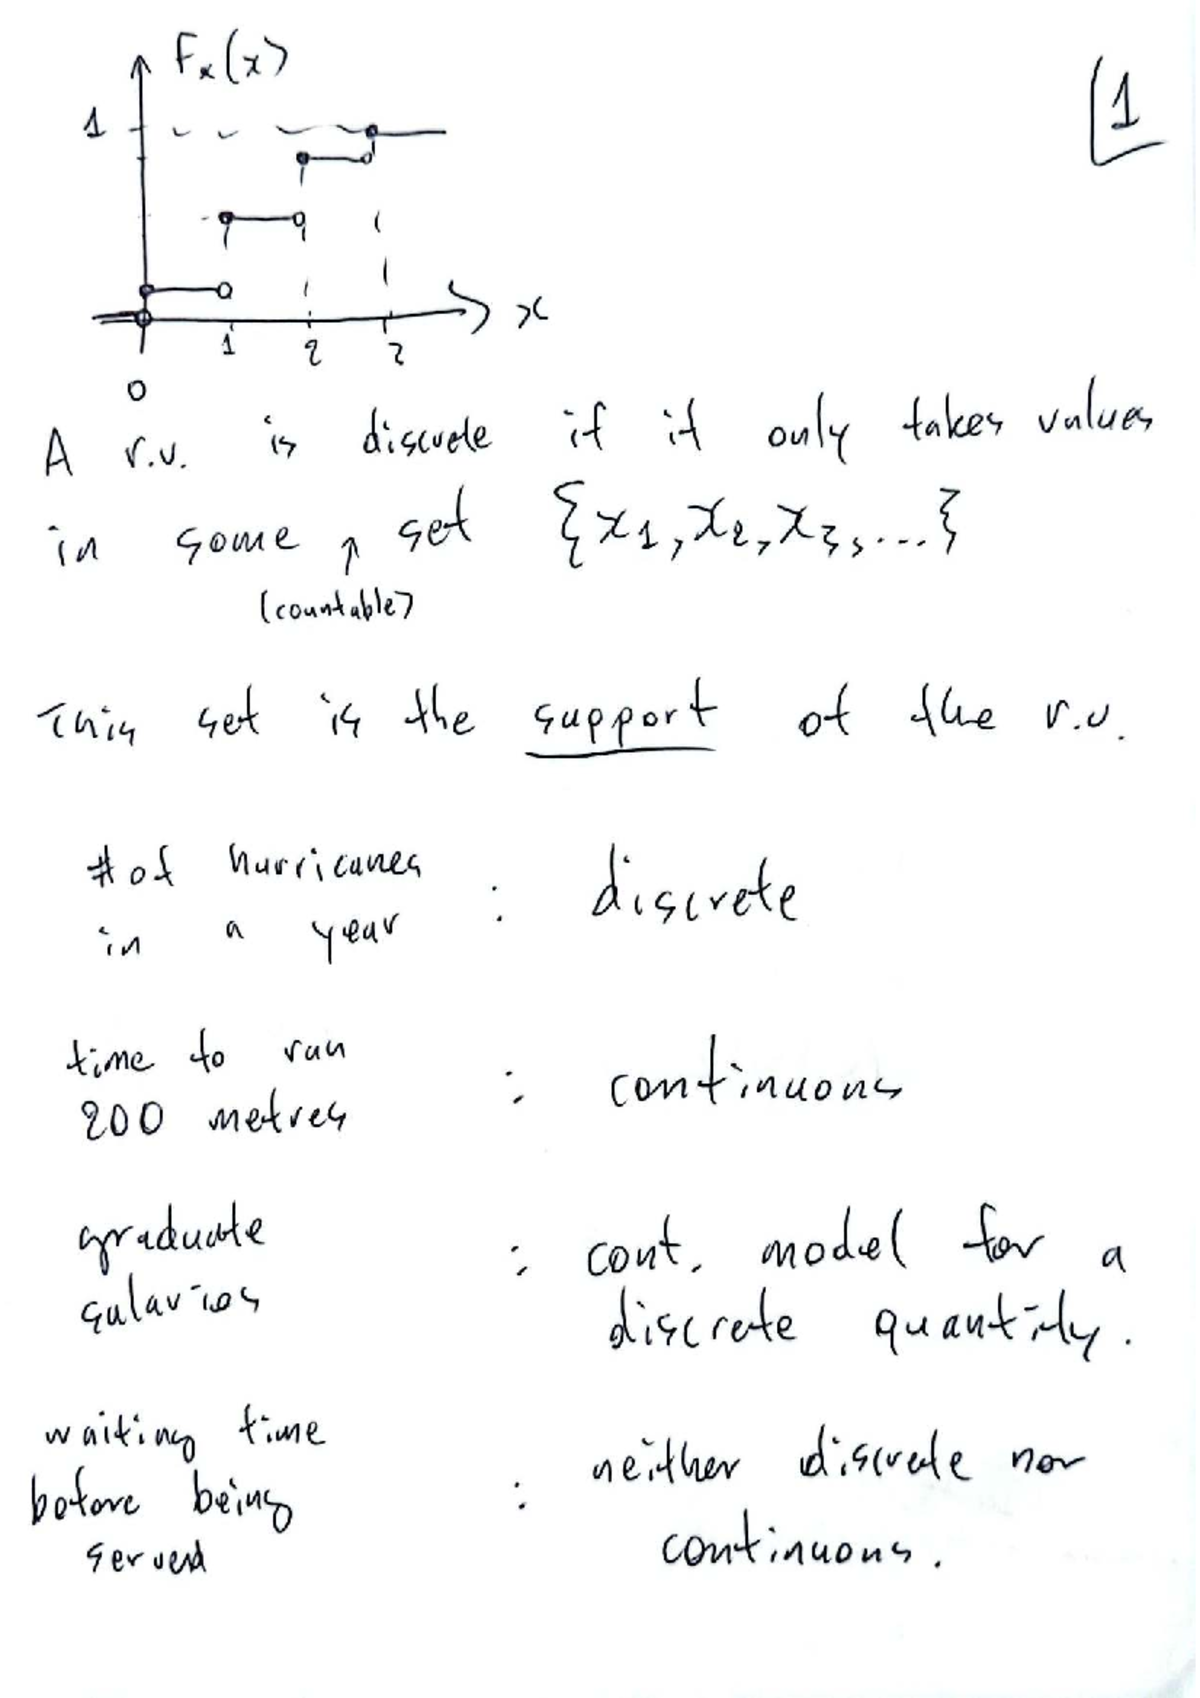 F_x(x)
1
1
x
1 2 3
0
A r.v. is discrete if it only takes values
in some ↑ set {x1, x2, x3, ...}
(countable)
This set is the support of the r.v.
# of hurricanes
in a year : discrete
time to run
200 metres : continuous
graduate
salaries : cont. model for a
discrete quantity.
waiting time
before being
served : neither discrete nor
continuous.